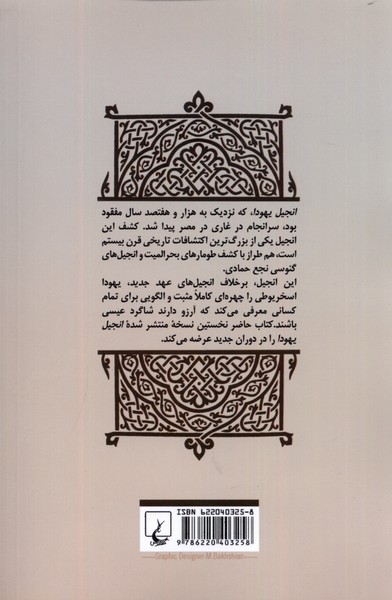 انجیل یهودا، که نزدیک به هزار و هفتصد سال مفقود
بود، سرانجام در غاری در مصر پیدا شد. کشف این
انجیل یکی از بزرگ‌ترین اکتشافات تاریخی قرن بیستم
است، هم طراز با کشف طومارهای بحرالمیت و انجیل‌های
گنوسی نجع حمادی.
این انجیل، برخلاف انجیل‌های عهد جدید، یهودا
اسخریوطی را چهره‌ای کاملاً مثبت و الگویی برای تمام
کسانی معرفی می‌کند که آرزو دارند شاگرد عیسی
باشند. کتاب حاضر نخستین نسخهٔ منتشر شدهٔ انجیل
یهودا را در دوران جدید عرضه می‌کند.
ISBN 622040325-8
9 786220 403258
Graphic Designer:M.Bakhshaei